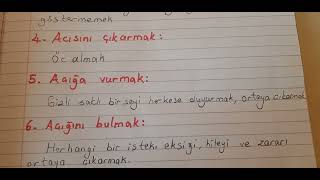 göstermemek
4. Acısını çıkarmak:
Öç almak
5. Açığa vurmak:
Gizli saklı bir şeyi herkese duyurmak, ortaya çıkarmak
6. Açığını bulmak:
Herhangi bir işteki eksiği, hileyi ve zararı
ortaya çıkarmak.